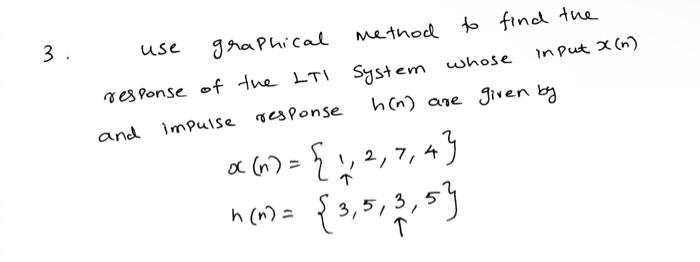 3. use graphical method to find the
response of the LTI system whose input x(n)
and impulse response h(n) are given by
x(n) = {1, 2, 7, 4}
↑
h(n) = {3, 5, 3, 5}
↑